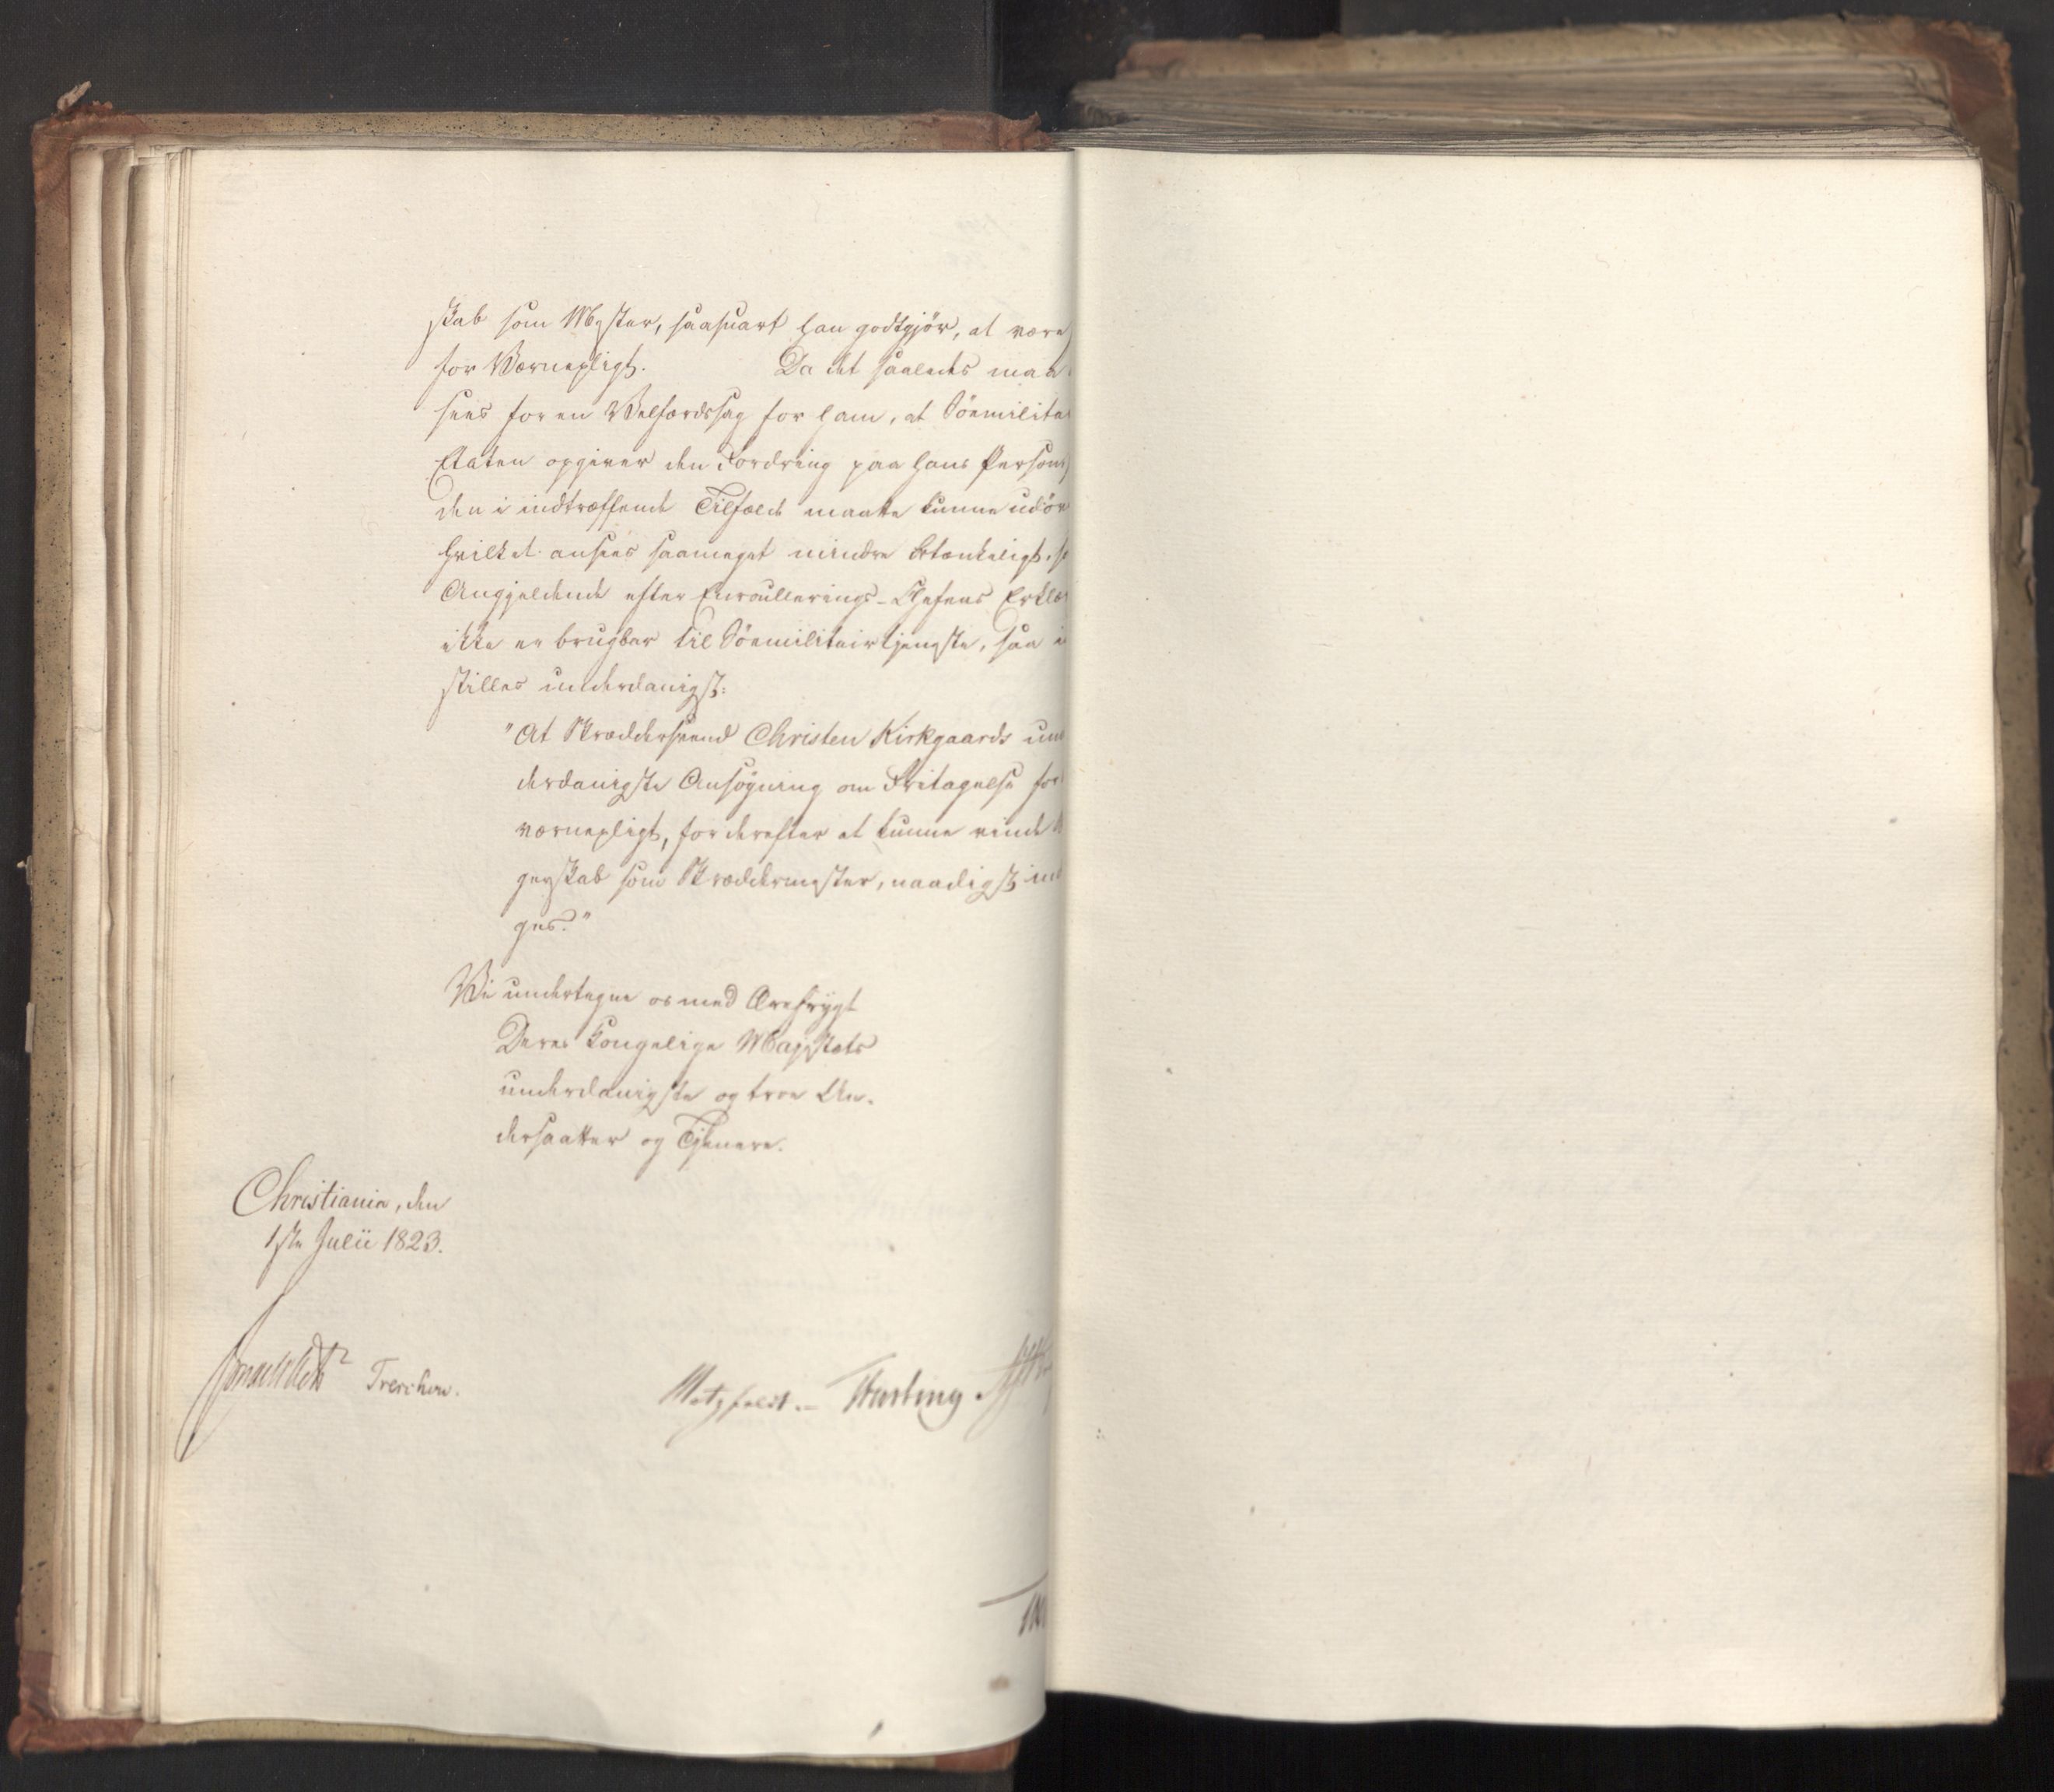 skab som Mester, saasnart han godtgjör, at være
for Værnepligt. Da det saaledes maa
sees for en Velfærdssag for ham, at Söemilitai
Etaten opgiver den Fordring paa hans Person
den i indtræffende Tilfælde maatte kunne udöv
hvilket ansees saameget mindre betænkeligt, s
Angjeldende efter Enroullerings-Chefens Erklæ
ikke er brugbar til Söemilitairtjeneste, saa i
stilles underdanigst:
"At Skräddersvend Christen Kirkgaards un
derdanigste Ansögning om Fritagelse for
værnepligt, for derefter at kunne vinde
gerskab som Skræddermester, naadigst ind
ges."
Vi undertegne os med Ærefrygt
Deres Kongelige Majestæts
underdanigste og troe Un-
dersaatter og Tjenere.
Christiania, den
1ste Julii 1823.
Treschow.
Motzfeldt. Fasting